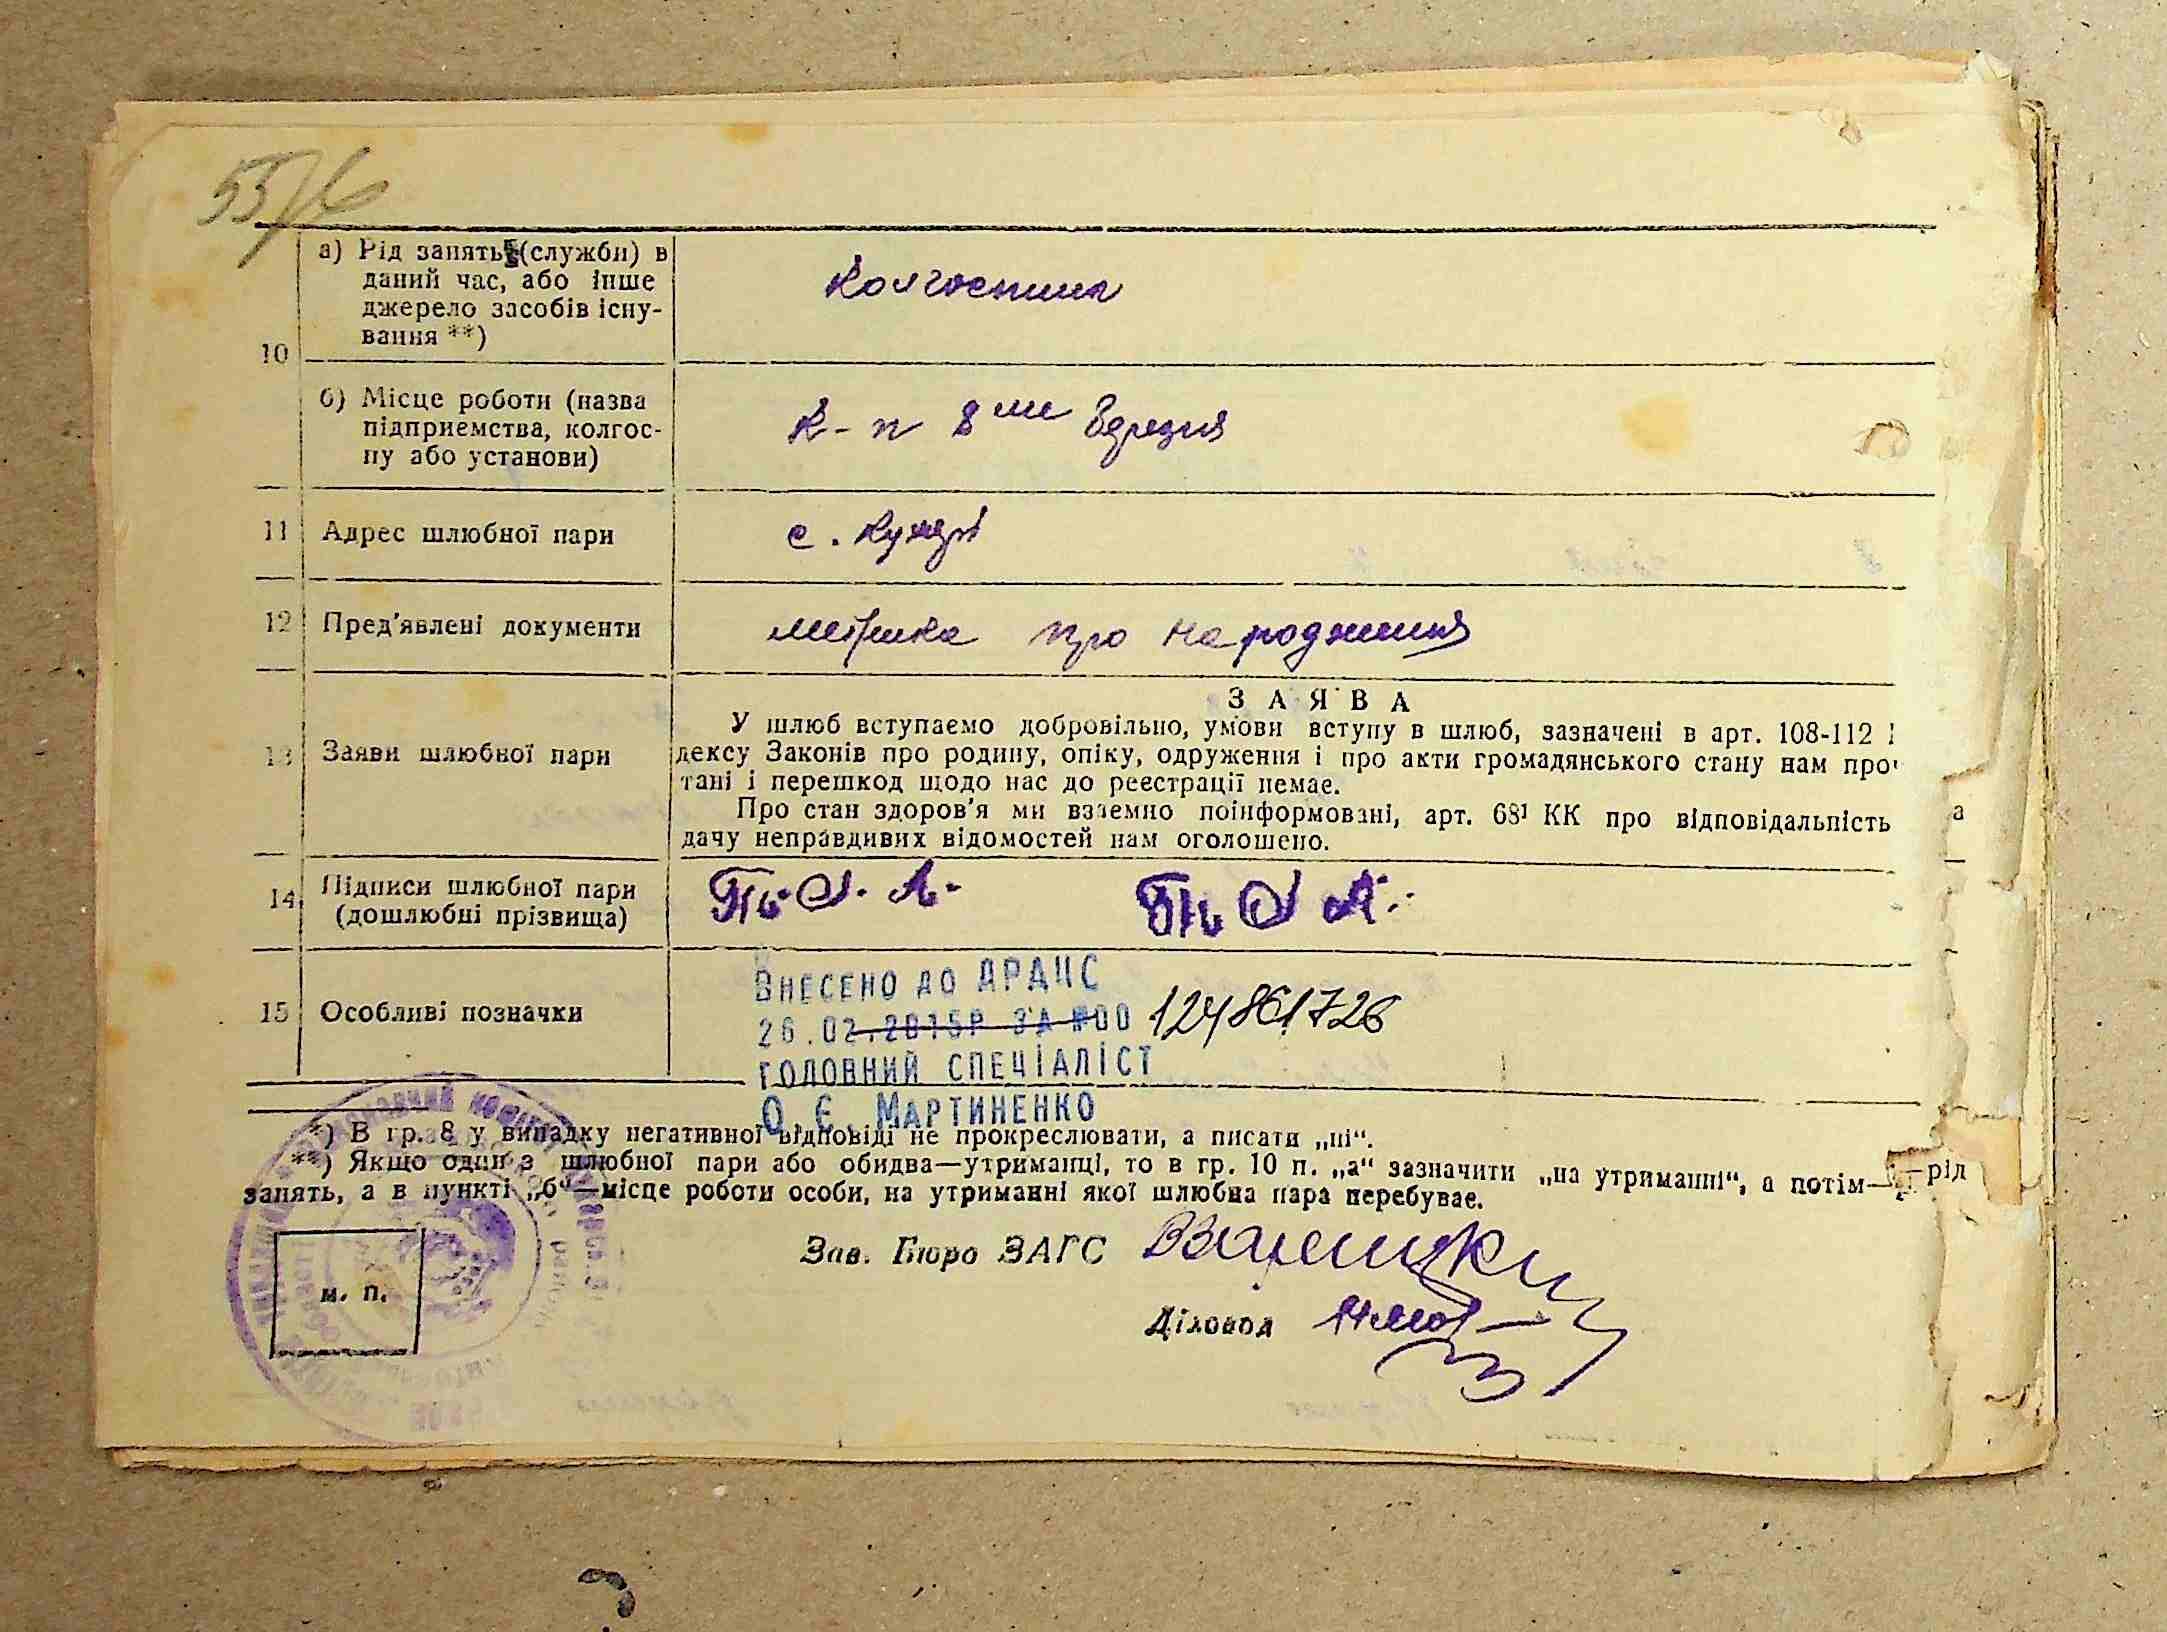 а) Рід занять (служби) в
даний час, або інше
джерело засобів існу-
вання **)
10
б) Місце роботи (назва
підприємства, колгос-
пу або установи)
К-п 8ми березня
11 Адрес шлюбної пари
с.
12 Пред'явлені документи
метрика про народження
13 Заяви шлюбної пари
ЗАЯВА
У шлюб вступаємо добровільно, умови вступу в шлюб, зазначені в арт. 108-112
дексу Законів про родину, опіку, одруження і про акти громадянського стану нам про
тані і перешкод щодо нас до реєстрації немає.
Про стан здоров'я ми взаємно поінформовані, арт. 68¹ КК про відповідальність
дачу неправдивих відомостей нам оголошено.
14 Підписи шлюбної пари
(дошлюбні прізвища)
15 Особливі позначки
ВНЕСЕНО ДО ДРАЦС
26.02.2015Р ЗА №00 124861726
ГОЛОВНИЙ СПЕЦІАЛІСТ
О.Є. МАРТИНЕНКО
*) В гр. 8 у випадку негативної відповіді не прокреслювати, а писати „ні“.
**) Якщо один з шлюбної пари або обидва—утриманці, то в гр. 10 п. „а“ зазначити „на утриманні“, а потім— рід
занять, а в пункті „б“—місце роботи особи, на утриманні якої шлюбна пара перебуває.
Зав. Бюро ЗАГС
м. п.
Діловод